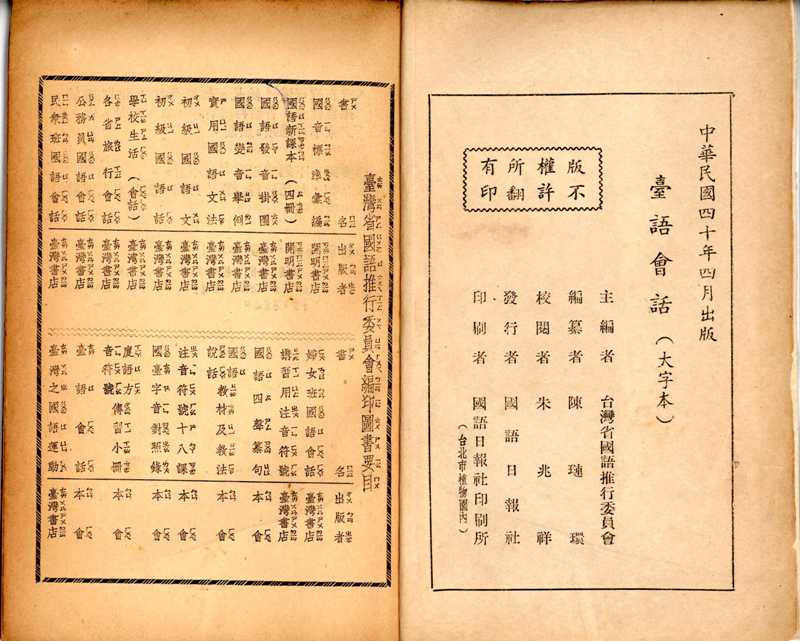 中華民國四十年四月出版
臺語會話（大字本）
版權所有
不許翻印
主編者 台灣省國語推行委員會
編纂者 陳璉環
校閱者 朱兆祥
發行者 國語日報社
印刷者 國語日報社印刷所
（台北市植物園內）
臺灣省國語推行委員會編印圖書要目
書名 出版者
國音標準彙編 開明書店
國語新課本（四冊） 開明書店
國語發音掛圖 臺灣書店
國語變音舉例 臺灣書店
實用國語文法 臺灣書店
初級國語文 臺灣書店
初級國語話 臺灣書店
學校生活（會話） 臺灣書店
各省旅行會話 臺灣書店
公務員國語會話 臺灣書店
民衆班國語會話 臺灣書店
書名 出版者
婦女班國語會話 臺灣書店
講習用注音符號 臺灣書店
國語四聲纂句 本會
國語說話教材及教法 本會
注音符號十八課 本會
國臺字音對照錄 本會
廈語方音符號傳習小冊 本會
臺語會話 本會
臺灣之國語運動 臺灣書店